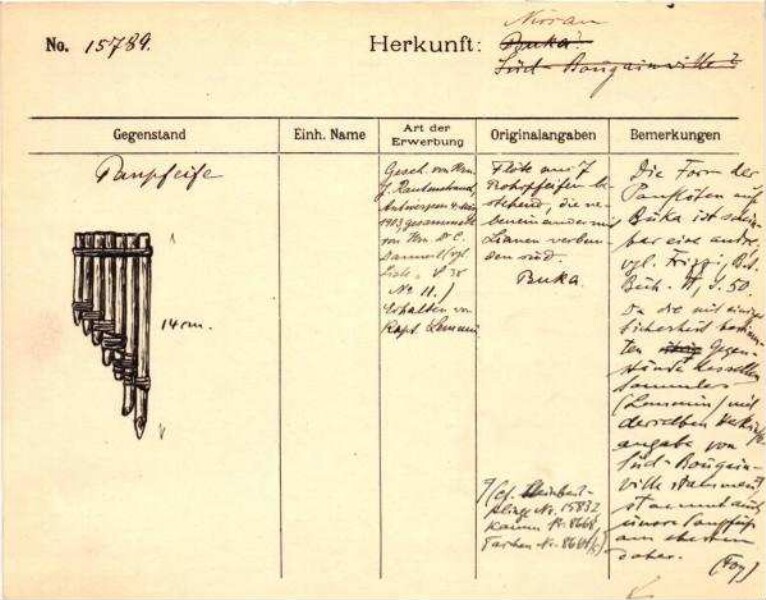 No. 15789.
Herkunft: Nissan
Buka?
Süd-Bougainville?
Gegenstand
Einh. Name
Art der Erwerbung
Originalangaben
Bemerkungen
Panpfeife
14 cm.
Gesch. von Hrn.
J. Rautenstrauch,
Antwerpen 4. März
1913, gesammelt
von Hrn. Dr C.
(vgl.
No 11.)
Erhalten von
Kapt.
Flöte aus 7
Rohrpfeifen be-
stehend, die ne-
beneinander mit
Lianen verbun-
den sind.
Buka.
(cf.
No. 15832
Kamm Nr. 8668
Taschen Nr.
Die Form der
Panflöten auf
Buka ist schein-
bar eine andre,
vgl. Frizzi, Bd.
II, S. 50.
Da die mit einiger
Sicherheit bestimm-
ten Gegen-
stände desselben
Sammlers
mit
derselben
angabe von
Süd-Bougain-
ville stammen,
stammt auch
unsere Panpfeife
am ehesten
daher.
(Foy)